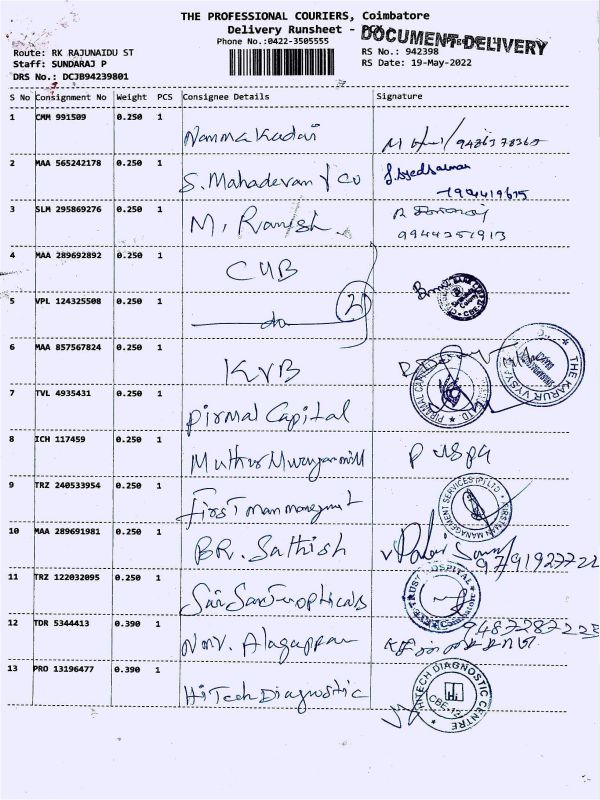 THE PROFESSIONAL COURIERS, Coimbatore
Delivery Runsheet -
DOCUMENT DELIVERY
Phone No.:0422-3505555
RS No.: 942398
Route: RK RAJUNAIDU ST
Staff: SUNDARAJ P
RS Date: 19-May-2022
DRS No.: DCJB94239801
S No Consignment No Weight PCS Consignee Details Signature
1 CMM 991509 0.250 1 Namma Kadai
2 MAA 565242178 0.250 1 S. Mahadevan & Co
3 SLM 295869276 0.250 1 M. Ramesh
9944251913
4 MAA 289692892 0.250 1 CUB
5 VPL 124325508 0.250 1 do 2
6 MAA 857567824 0.250 1 KVB
THE KARUR VYSYA
7 TVL 4935431 0.250 1 Pirmal Capital
PIRAMAL CAPITAL
8 ICH 117459 0.250 1 Muthur Murugan mill
9 TRZ 240533954 0.250 1 First man managment
FIRSTMAN MANAGEMENT SERVICES (P) LTD
10 MAA 289691981 0.250 1 BR. Sathish
11 TRZ 122032095 0.250 1 Sai Sankar opticals
TRUST HOSPITAL
12 TDR 5344413 0.390 1 Nmv. Alagappan
9487287225
13 PRO 13196477 0.390 1 HiTech Diagnostic
HITECH DIAGNOSTIC CENTRE
Hi
CBE-12